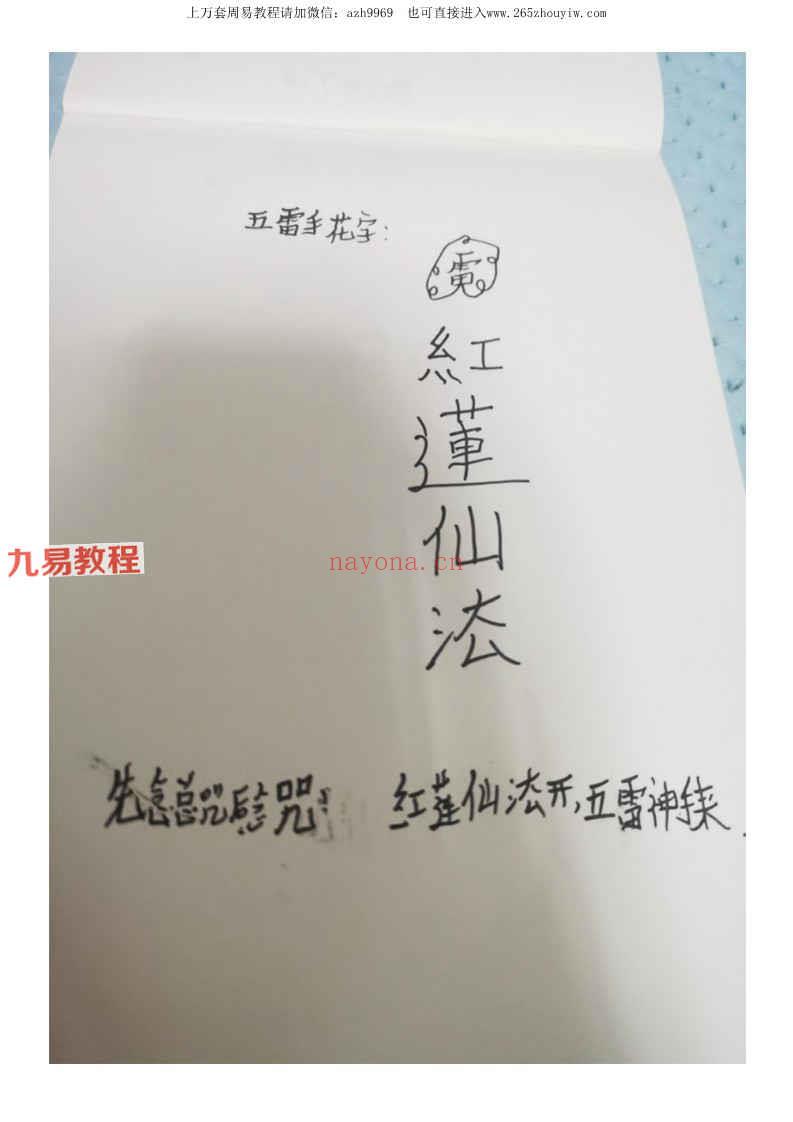 上万套周易教程请加微信：azh9969 也可直接进入www.265zhouyiw.com
五雷手花字：
紅
蓮
仙
法
九易教程
nayona.cn
先念总咒后念咒： 红莲仙法开，五雷神 来